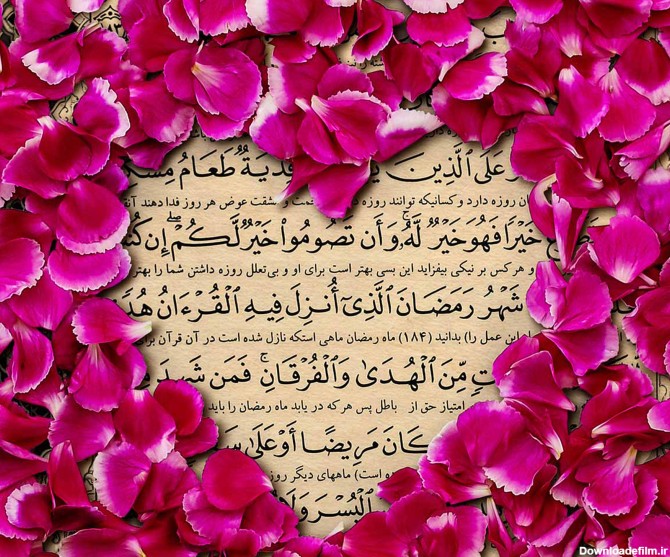 عَلَى ٱلَّذِينَ فِدْيَةٌ طَعَامُ
روزه دارد و کسانیکه توانند روزه و مشقت عوض هر روز فدا دهند
خَيْرًا فَهُوَ خَيْرٌ لَّهُۥ ۚ وَأَن تَصُومُوا۟ خَيْرٌ لَّكُمْ ۖ إِن
و هر کس بر نیکی بیفزاید این بسی بهتر است برای او و بی‌تعلل روزه داشتن شما را بهتر
شَهْرُ رَمَضَانَ ٱلَّذِىٓ أُنزِلَ فِيهِ ٱلْقُرْءَانُ
این عمل را) بدانید (۱۸۴) ماه رمضان ماهی استکه نازل شده است در آن قرآن
مِّنَ ٱلْهُدَىٰ وَٱلْفُرْقَانِ ۚ فَمَن شَهِدَ
امتیاز حق از باطل پس هر که در یابد ماه رمضان را باید
كَانَ مَرِيضًا أَوْ عَلَىٰ
است) ماههای دیگر
ٱلْيُسْرَ
Downloadefilm.ir